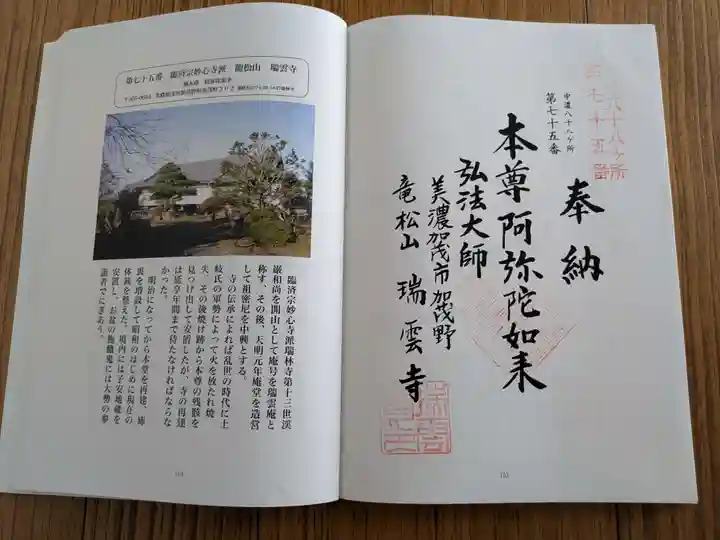 第七十五番 臨済宗妙心寺派 龍松山 瑞雲寺
臨済宗妙心寺派瑞林寺第十三世渓
巌和尚を開山として庵号を瑞雲庵と
称す、その後、天明元年庵堂を造営
して祖密尼を中興とする。
寺の伝承によれば乱世の時代に土
岐氏の軍勢によって火を放たれ焼
失、その後焼け跡から本尊の残骸を
見つけ出して安置したが、寺の再建
は延享年間まで待たなければならな
かった。
明治になってから本堂を再建、庫
裏を増設して昭和のはじめに現在の
体裁を整えた。境内には子安地蔵を
安置し、お盆の施餓鬼には大勢の参
詣者でにぎあう。
奉納
八十八ヶ所
第七十五番
中濃八十八ヶ所
第七十五番
本尊阿弥陀如来
弘法大師
美濃加茂市加茂野
竜松山 瑞雲寺
155